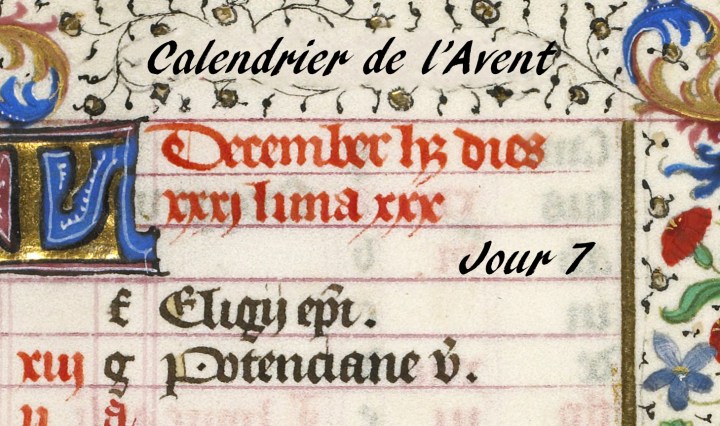 Calendrier de l'Avent
KL
December hꝫ dies
xxxj luna xxx
Jour 7
f Eligij ep̄i.
xiij g Potenciane v̄.
ij a